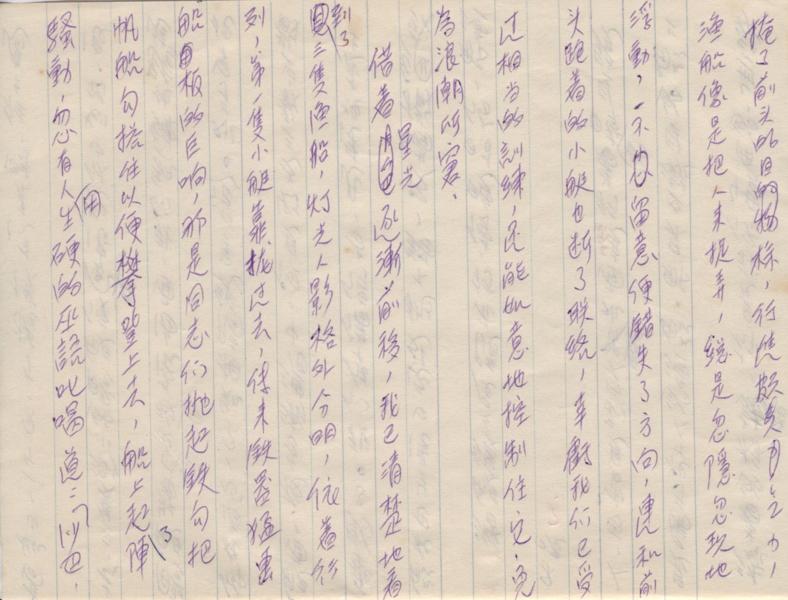 掩了前头的目的物标，行进颇失
渔船像是把人来捉弄，総是忽隐忽现地
浮动，一不留意便错失了方向，連和前
头跑着的小艇也断了联络，幸虧我们已受
过相当的訓練，还能如意地控制住它，免
為浪潮所害．
借着星光逐漸前移，我已清楚地看
到了三隻漁船，灯光人影格外分明，依着行
列，第一隻小艇靠拢过去，传来鉄器猛击
船板的巨响，那是同志们抛起鉄勾把
帆船勾搭住以便攀登上去，船上起了陣
騷動，忽有人用生硬的巫語叱喝道：